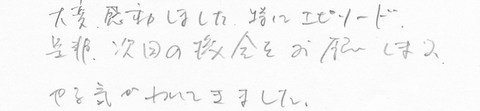 大変、感動しました。特にエピソード、
是非、次回の機会をお願いします。
やる気がわいてきました。